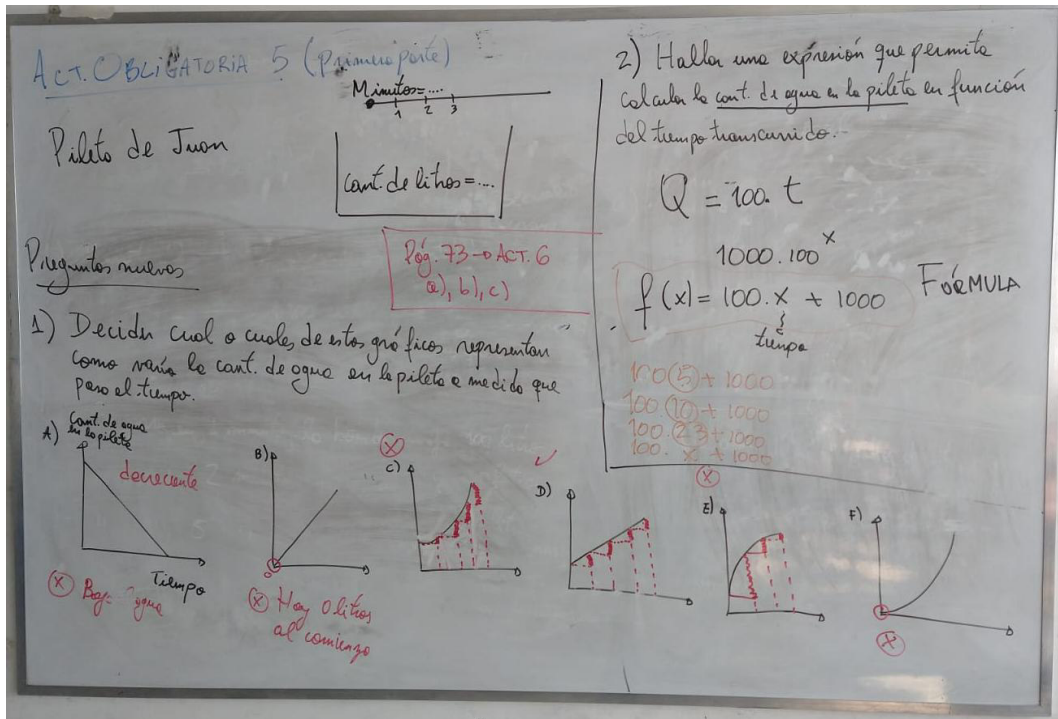 ACT. OBLIGATORIA 5 (Primera parte)
Minutos=....
1 2 3
Pileta de Juan
Cant. de litros=....
Preguntas nuevas
Pág. 73 → ACT. 6
a), b), c)
1) Decidir cual o cuales de estos gráficos representan
como varía la cant. de agua en la pileta a medida que
pasa el tiempo.
A) Cant. de agua
en la pileta
decreciente
Tiempo
Baja agua
B)
0
Hay 0 litros
al comienzo
C)
D)
E)
F)
2) Hallar una expresión que permita
calcular la cant. de agua en la pileta en función
del tiempo transcurrido.-
Q = 100. t
1000. 100^x
f(x) = 100. x + 1000 FÓRMULA
tiempo
100(5)+ 1000
100.(10)+ 1000
100.23+1000
100. x + 1000